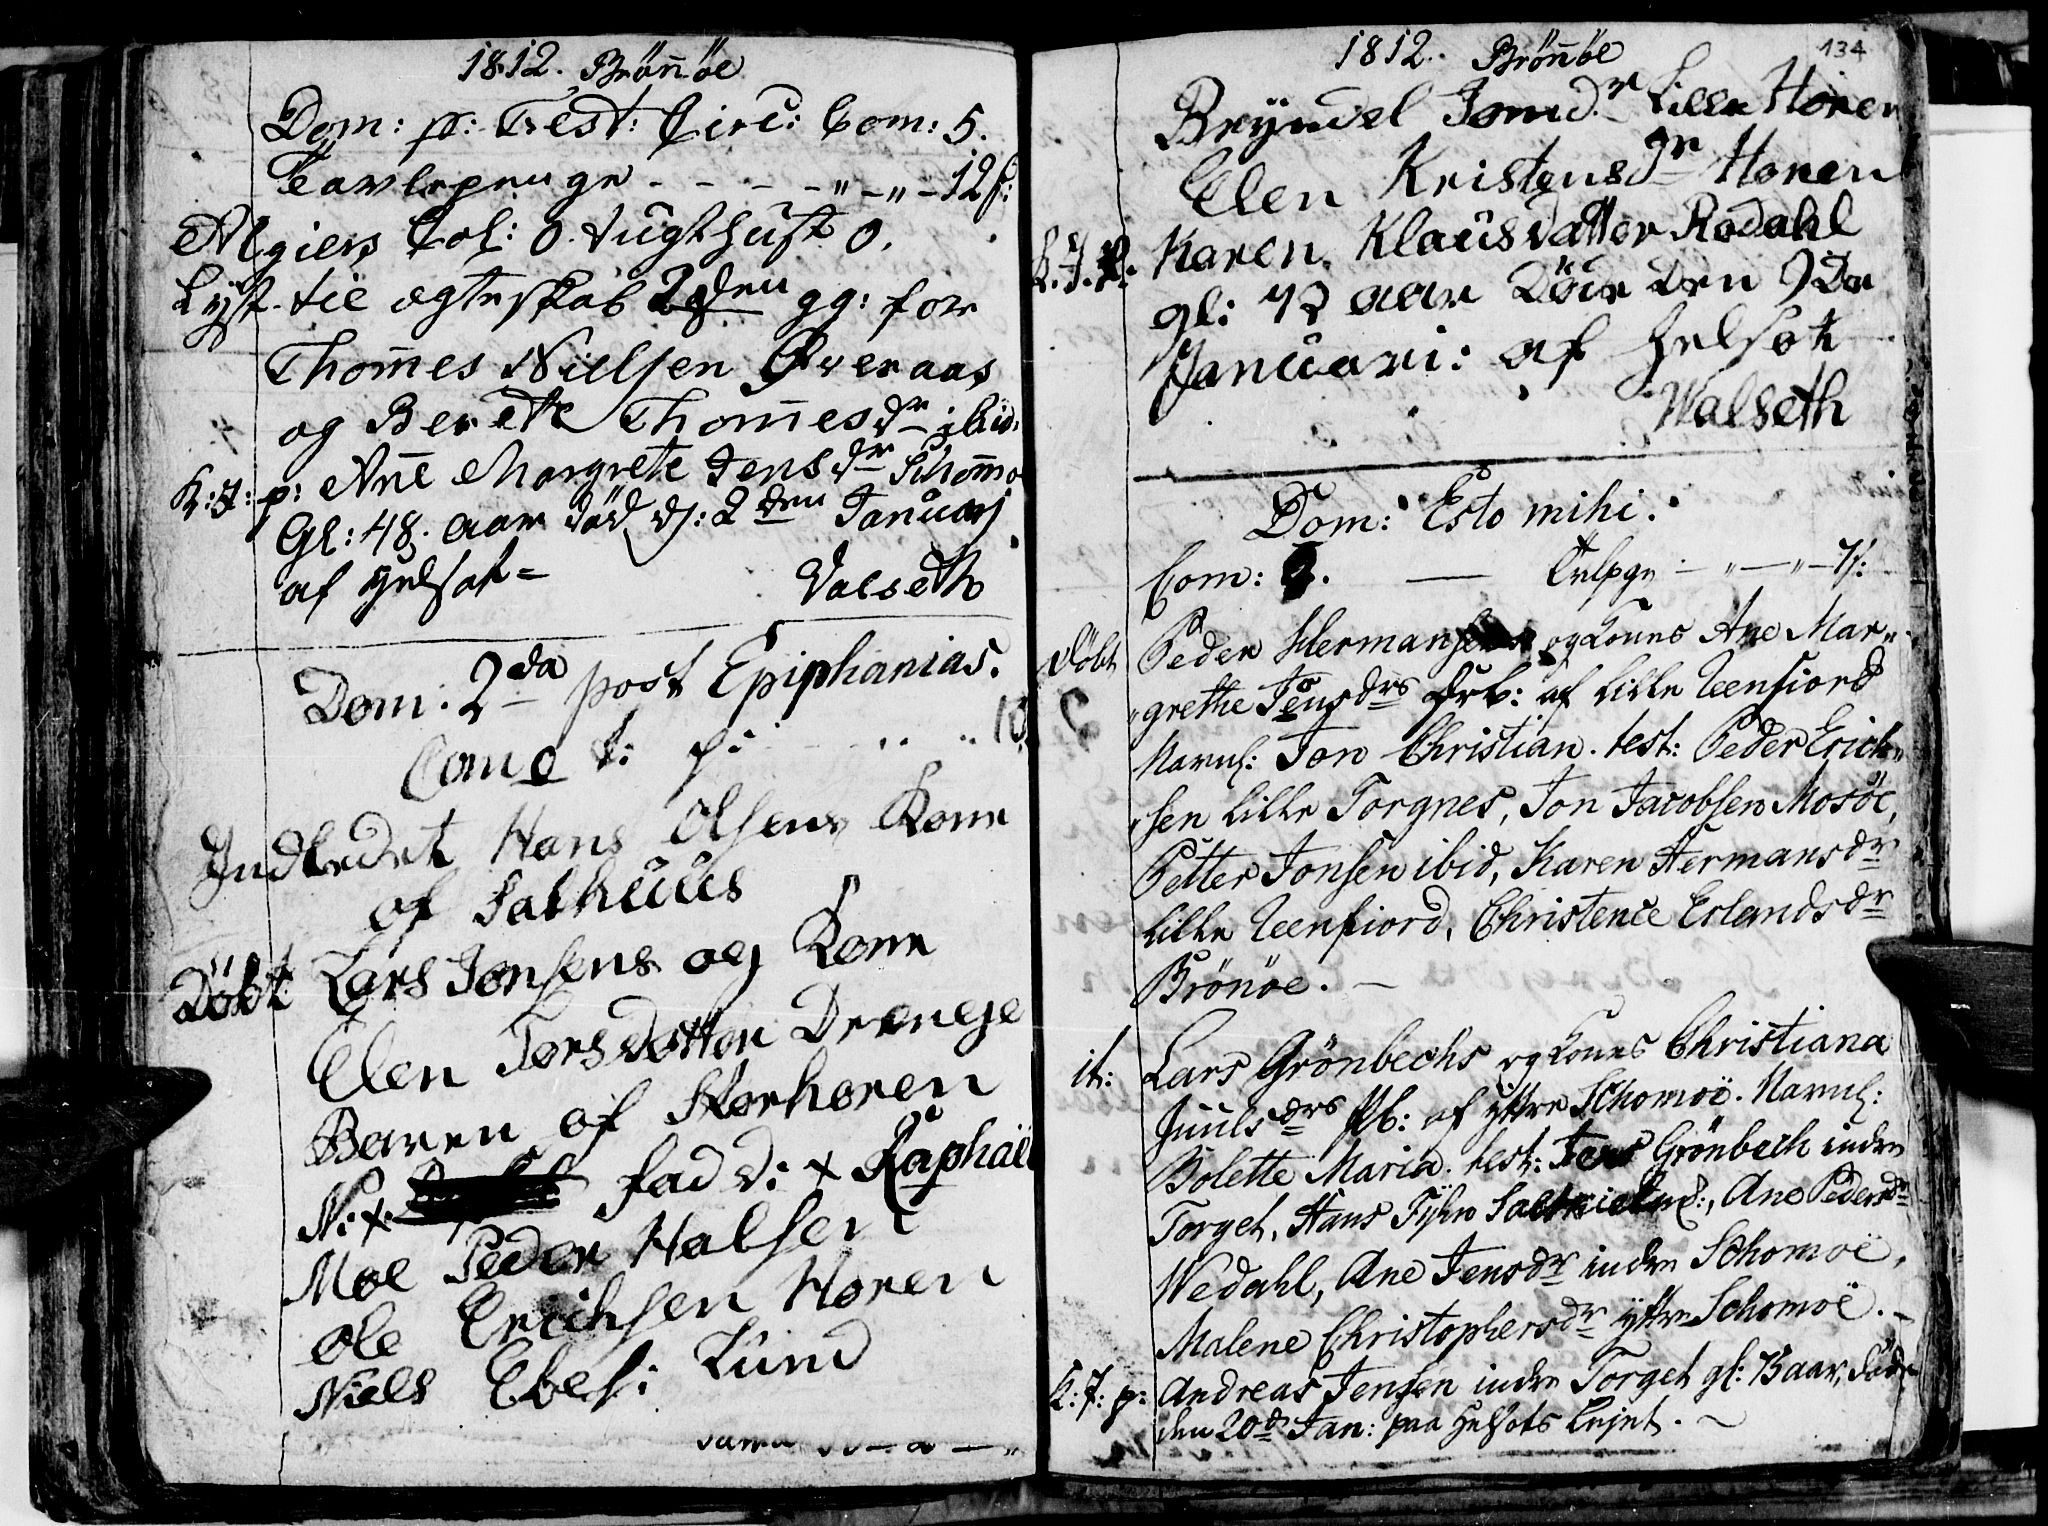 1812. Brönnöe
Dom: pr: Fest: Circ: Com: 5.
Tavlepenge - - - - " - " - 12 s:
Algiers Col: 0. Tugthust 0.
Lyst til ægteskab 2den gg: for
Thomes Nielsen Øveraas
og Berette Thomesdr ibid:
K: J: p: Ane Margrete Jensdr Schomo
Gl: 48. aar død d: 2den Januarj
af Helsot =
Valseth
Dom: 2da post Epiphanias.
Com 0 t: p: . . . . 10
Indledet Hans Olsens Kone
af Salhuus
Döbt Lars Jonsens og Kone
Elen Torsdatter Drænge
Barn af Storhoren
N: x fadd: x Raphael
Moe Peder Halsen
Ole Erichsen Horen
Niels Ebes: Lund
1812. Brönnöe
134
Bryndel Jomdr Lille Horen
Elen Kristensdr Horen
K. J. p. Karen Klausdatter Rodahl
gl: 73 aar Döde den 9de
Januari: af Helsot
Walseth
Dom: Esto mihi.
Com: 0. — Tvlpge - " - " - 7 s:
Döbt Peder Hermansens og Kones Ane Mar-
grethe Jensdrs Drb: af Lille Teenfiord
Navnl: Jon Christian. test: Peder Erich-
sen Lille Torgnes, Jon Jacobsen Mosöe,
Petter Jonsen ibid, Karen Hermansdr
Lille Teenfiord, Christence Erlandsdr
Brönöe. —
it: Lars Grönbechs og Kones Christiana
Juulsdrs Pb: af yttre Schomoë. Navnl:
Bolette Maria. test: Jens Grönbech indre
Torget, Hans Tyhn, Ane Pedersdr
Wedahl, Ane Jensdr indre Schomoë,
Malene Christophersdr yttre Schomoë. —
K: J: p: Andreas Jensen indre Torget gl: 13 aar, död
den 20de Jan: paa Helsots Lejet. —